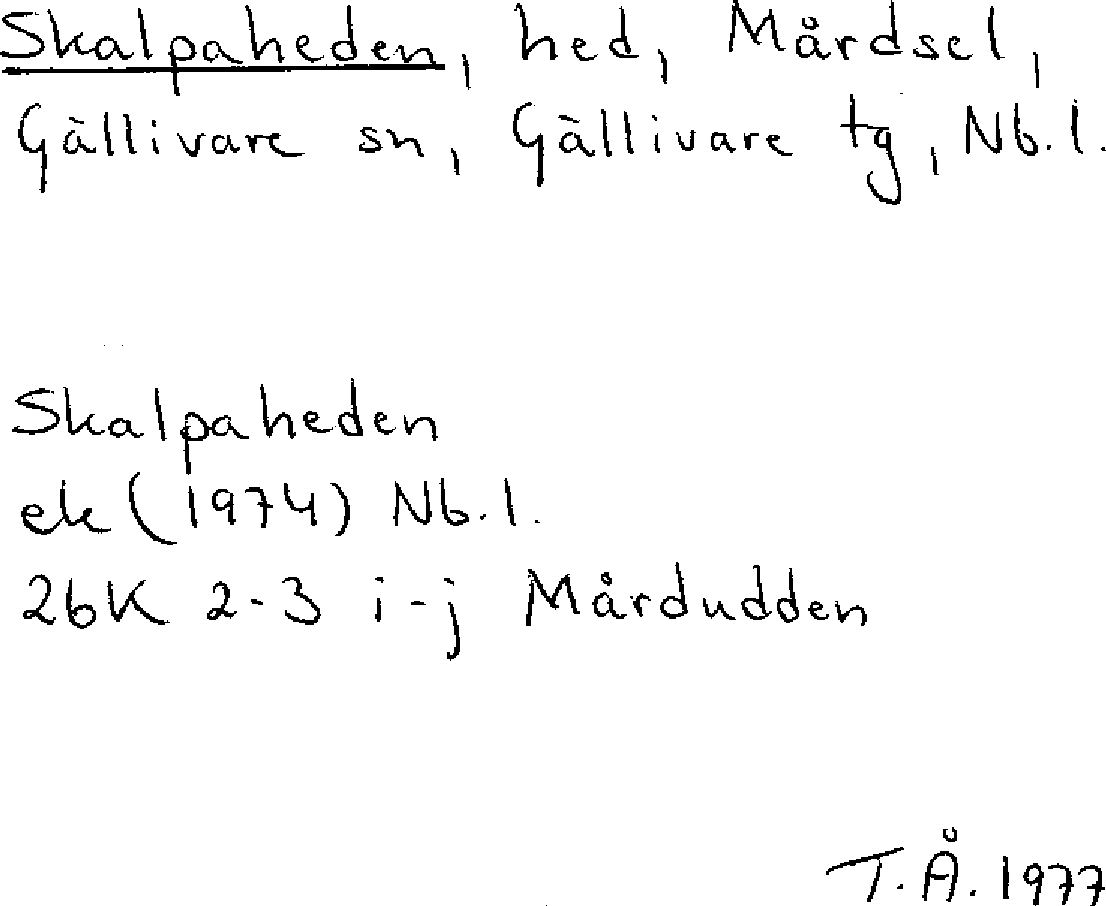 Skalpaheden, hed, Mårdsel,
Gällivare sn, Gällivare tg, Nb.l.
Skalpaheden
ek (1974) Nb.l.
26K 2-3 i-j Mårdudden
T.Å. 1977